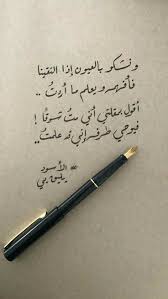 ونشكو بالعيون إذا التقينا
فأفهمه ويعلم ما أردتُ ..
أقول بمقلتي أني متُّ شوقًا !
فيوحي طرفه إني قد علمتُ ..
الأسود
يليق بي